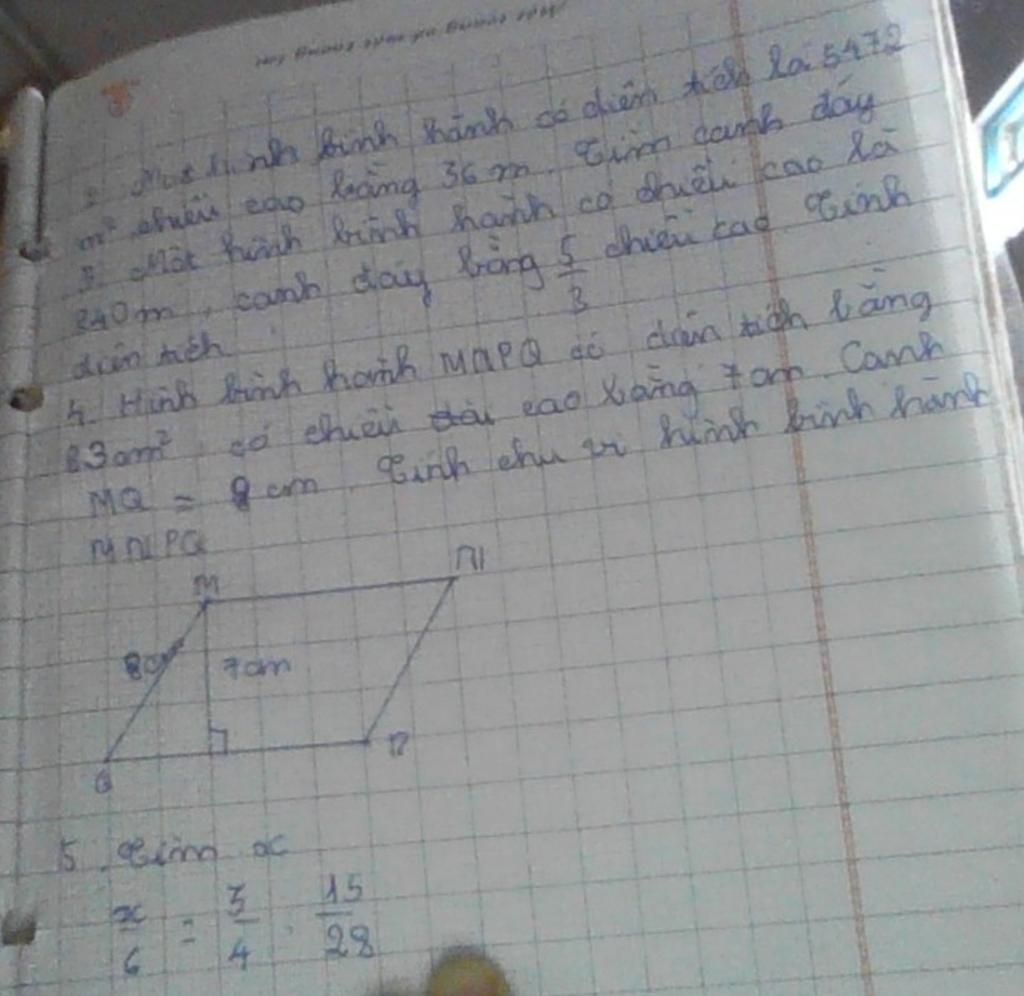 Một hình bình hành có diện tích là 5472
m² chiều cao bằng 36 m. Tìm cạnh đáy
3. Một hình bình hành có chiều cao là
240m, cạnh đáy bằng 5/3 chiều cao. Tính
diện tích
4. Hình bình hành MNPQ có diện tích bằng
83cm² có chiều cao bằng 7cm. Cạnh
MQ = 8 cm. Tính chu vi hình bình hành
MNPQ
M N
8cm 7cm
Q P
5. Tìm x
x/6 = 3/4 : 15/28